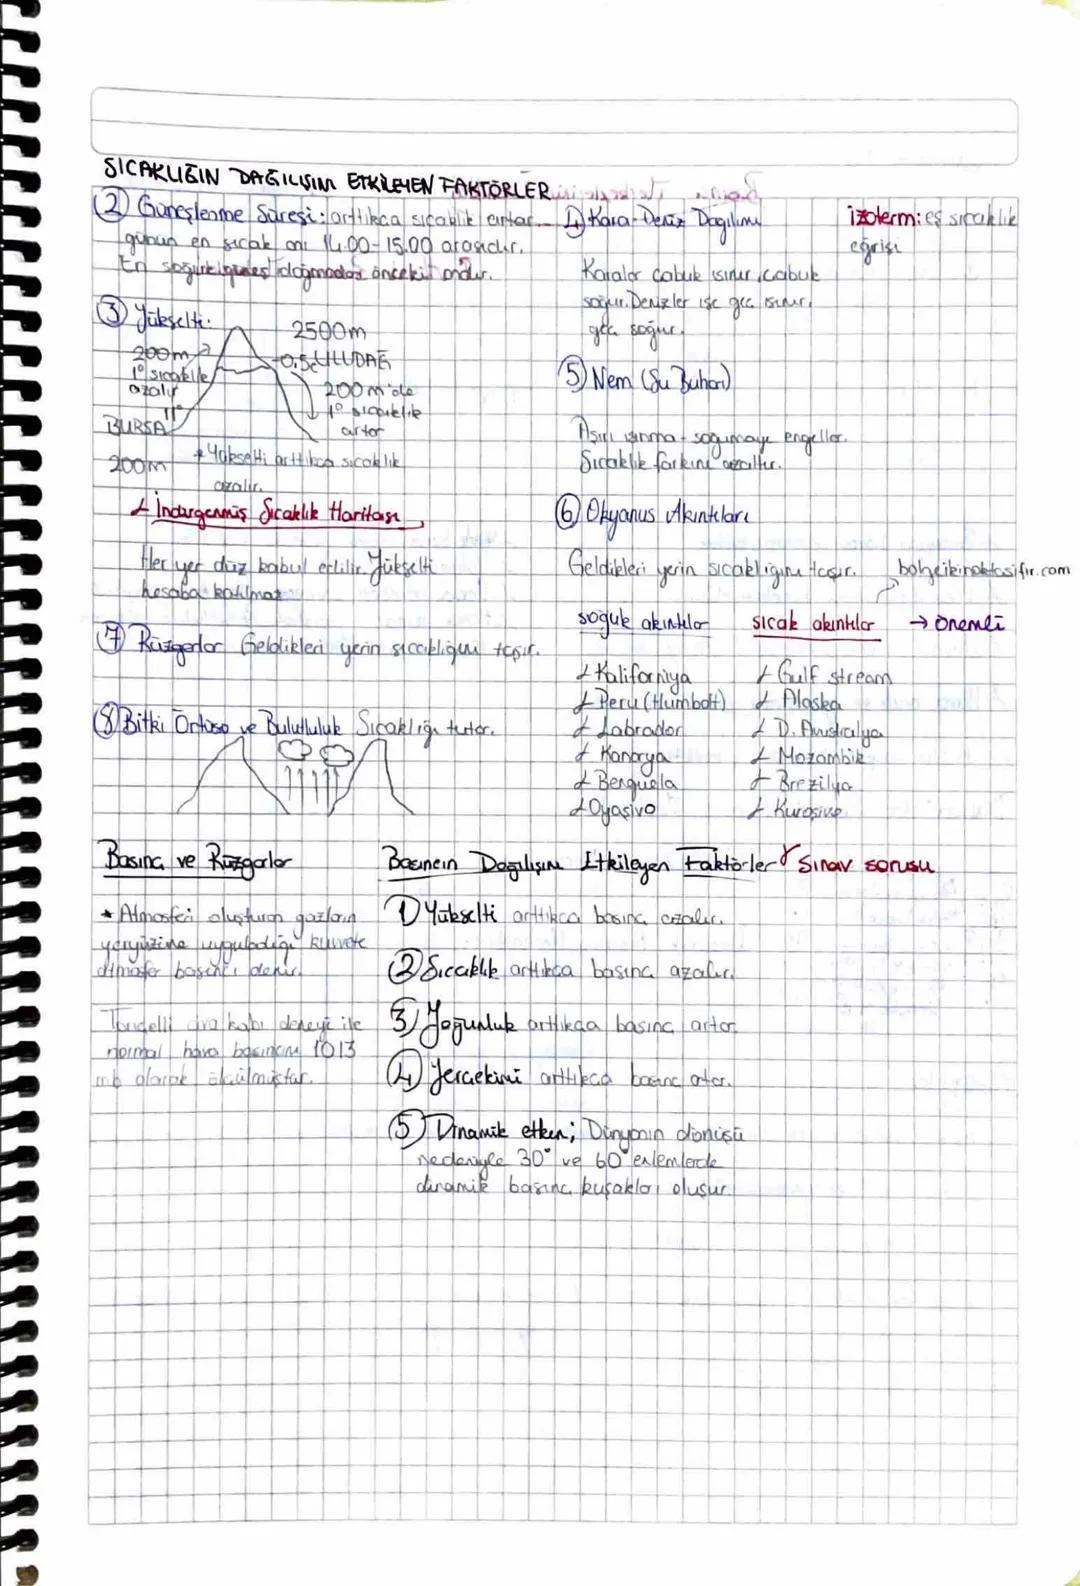 SICAKLIĞIN DAĞILIŞINI ETKİLEYEN FAKTÖRLER
② Güneşlenme Süresi: arttıkça sıcaklık artar.
günün en sıcak anı 14.00-15.00 arasıdır.
En soğuk güneş doğmadan önceki andır.
③ Yükselti:
2500m
200m
-0,5c ULUDAĞ
1° sıcaklık
azalır
200m'de
1° sıcaklık
artar
11°
BURSA
200m
* Yükselti arttıkça sıcaklık
azalır.
İndirgenmiş Sıcaklık Haritası
Her yer düz kabul edilir. Yükselti
hesaba katılmaz
⑦ Rüzgarlar Geldikleri yerin sıcaklığını taşır.
⑧ Bitki Örtüsü ve Bulutluluk Sıcaklığı tutar.
④ Kara-Deniz Dağılımı
Karalar çabuk ısınır, çabuk
soğur. Denizler ise geç ısınır,
geç soğur.
izoterm: eş sıcaklık
eğrisi
⑤ Nem (Su Buharı)
Aşırı ısınma-soğumayı engeller.
Sıcaklık farkını azaltır.
⑥ Okyanus Akıntıları
Geldikleri yerin sıcaklığını taşır.
bolgeikinoktasifir.com
soğuk akıntılar
sıcak akıntılar → önemli
Kaliforniya
Peru (Humbolt)
Labrador
Kanarya
Benguela
Oyaşivo
Gulf stream
Alaska
D. Avustralya
Mozambik
Brezilya
Kuroşivo
Basınç ve Rüzgarlar
* Atmosferi oluşturan gazların
yeryüzüne uyguladığı kuvvete
atmosfer basıncı denir.
Toriçelli civa kabı deneyi ile
normal hava basıncını 1013
mb olarak ölçülmüştür.
Basıncın Dağılışını Etkileyen Faktörler Sınav sorusu
① Yükselti arttıkça basınç azalır.
② Sıcaklık arttıkça basınç azalır.
3) Yoğunluk arttıkça basınç artar
④ Yerçekimi arttıkça basınç artar.
⑤ Dinamik etken; Dünyanın dönüşü
nedeniyle 30° ve 60° enlemlerde
dinamik basınç kuşakları oluşur.